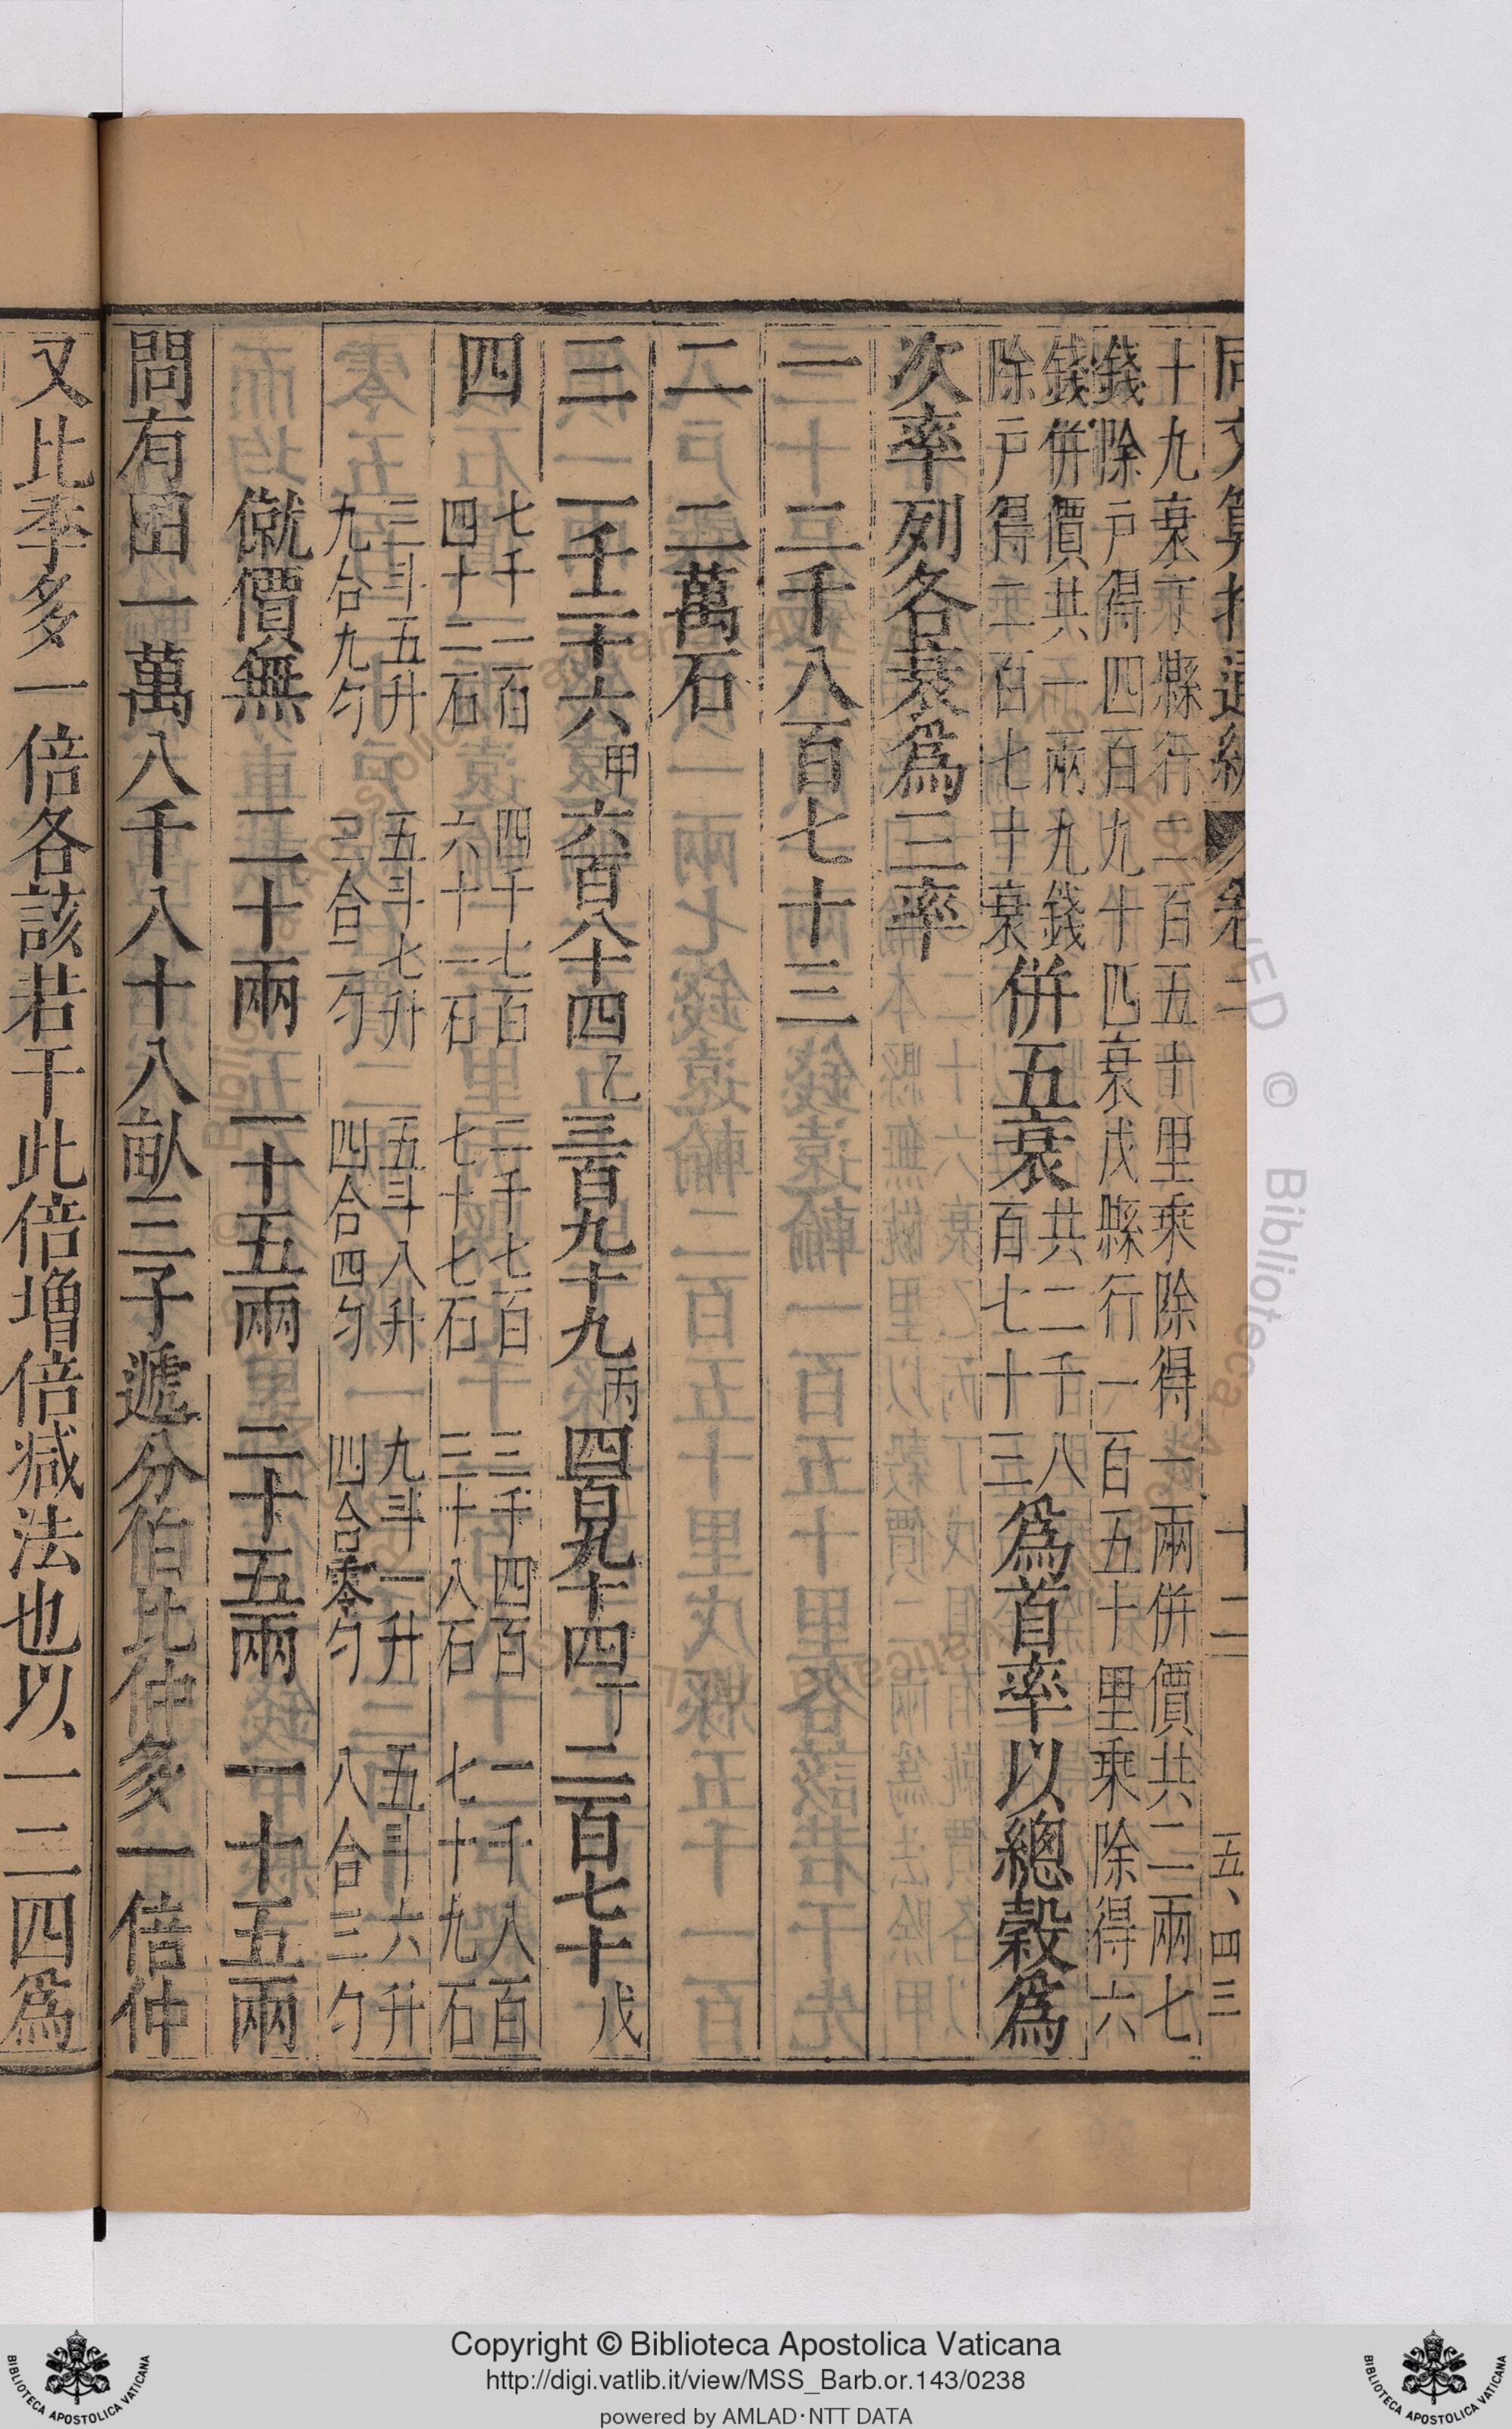 同文算指通編 卷二 十二 五、四三
十九衰丁縣行二百五十里乘除得一兩併價共二兩七
錢除戶得四百九十四衰戊縣行一百五十里乘除得六
錢併價共一兩九錢
除戶得二百七十衰
併五衰
共二千八
百七十三
爲首率以總穀爲
次率列各衰爲三率
一 二千八百七十三
二 二萬石
三 一千二十六甲 六百八十四乙 三百九十九丙 四百九十四丁 二百七十戊
四 七千一百四十二石 四千七百六十一石 二千七百七十七石 三千四百三十八石 一千八百七十九石
三斗五升九合九勺 五斗七升三合一勺 五斗八升四合四勺 九斗一升四合零勺 五斗六升八合三勺
僦價無 二十兩 一十五兩 二十五兩 一十五兩
問有田一萬八千八十八畝三子遞分伯比仲多一倍仲
又比季多一倍各該若干此倍增倍減法也以一二四爲
Copyright © Biblioteca Apostolica Vaticana
http://digi.vatlib.it/view/MSS_Barb.or.143/0238
powered by AMLAD·NTT DATA
BIBLIOTECA APOSTOLICA VATICANA
BIBLIOTECA APOSTOLICA VATICANA